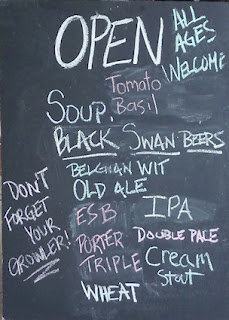 OPEN
ALL
AGES
WELCOME
SOUP.
Tomato
Basil
BLACK SWAN BEERS
BELGIAN WIT
OLD ALE
ESB
IPA
PORTER
DOUBLE PALE
TRIPLE
Cream
Stout
WHEAT
DON'T
FORGET
YOUR
GROWLER!